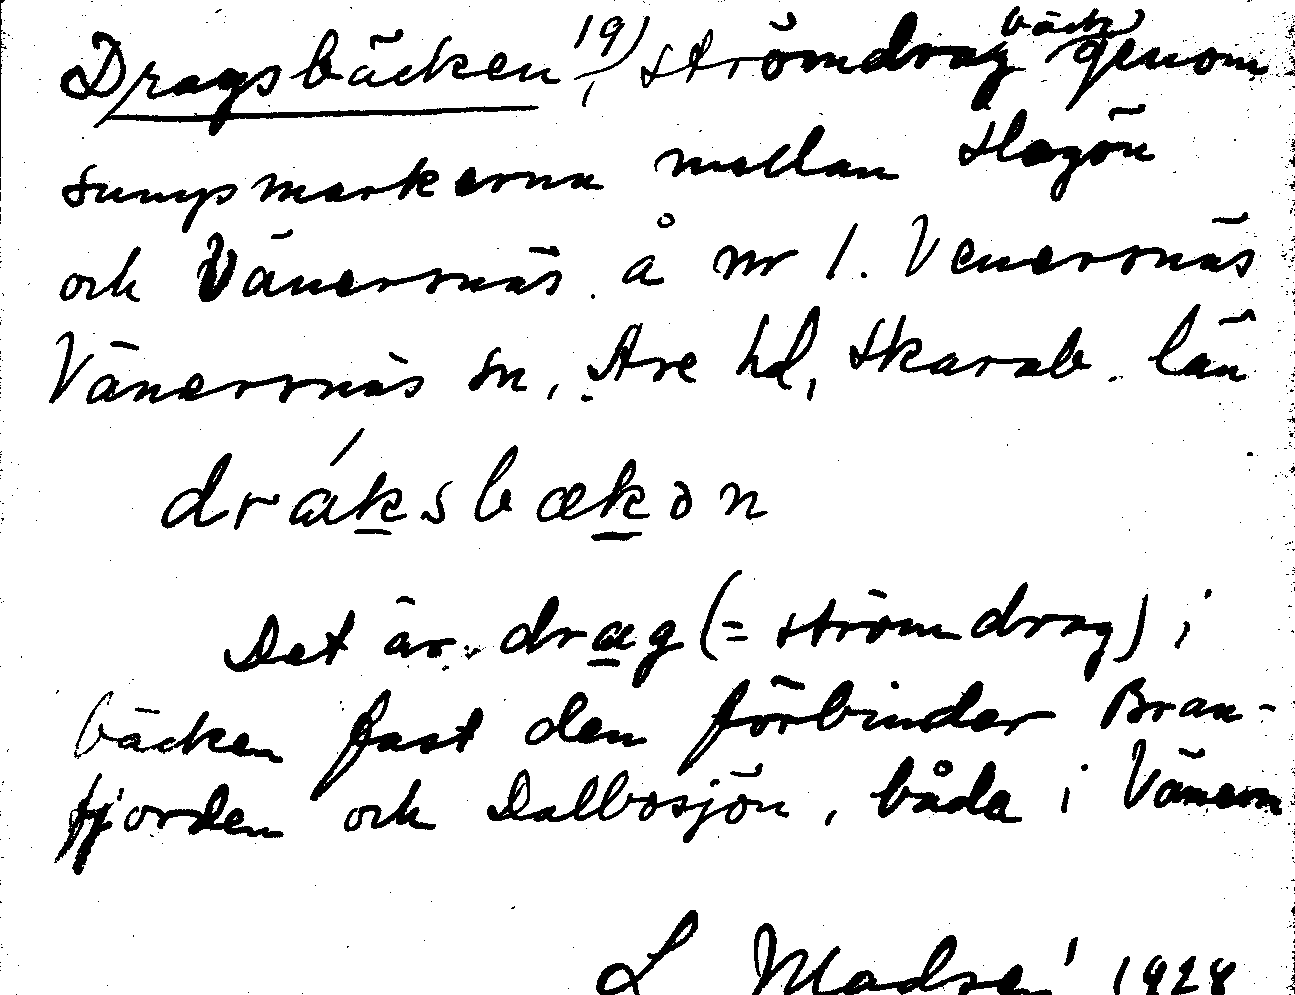 Dragsbäcken 19), strömdrag bäck genom
sumpmarkerna mellan Slagön
och Vänersnäs å nr 1. Venersnäs
Vänersnäs sn, Åse hd, Skarab. län
drá̱ksbækən
Det är drag (= strömdrag) i
bäcken fast den förbinder Bran-
fjorden och Dalbosjön, båda i Vänern
L Madsen 1928